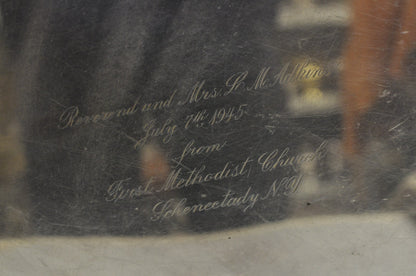 Reverend and Mrs. L. M. Adkins
July 7th, 1945
from
First Methodist Church
Schenectady N.Y